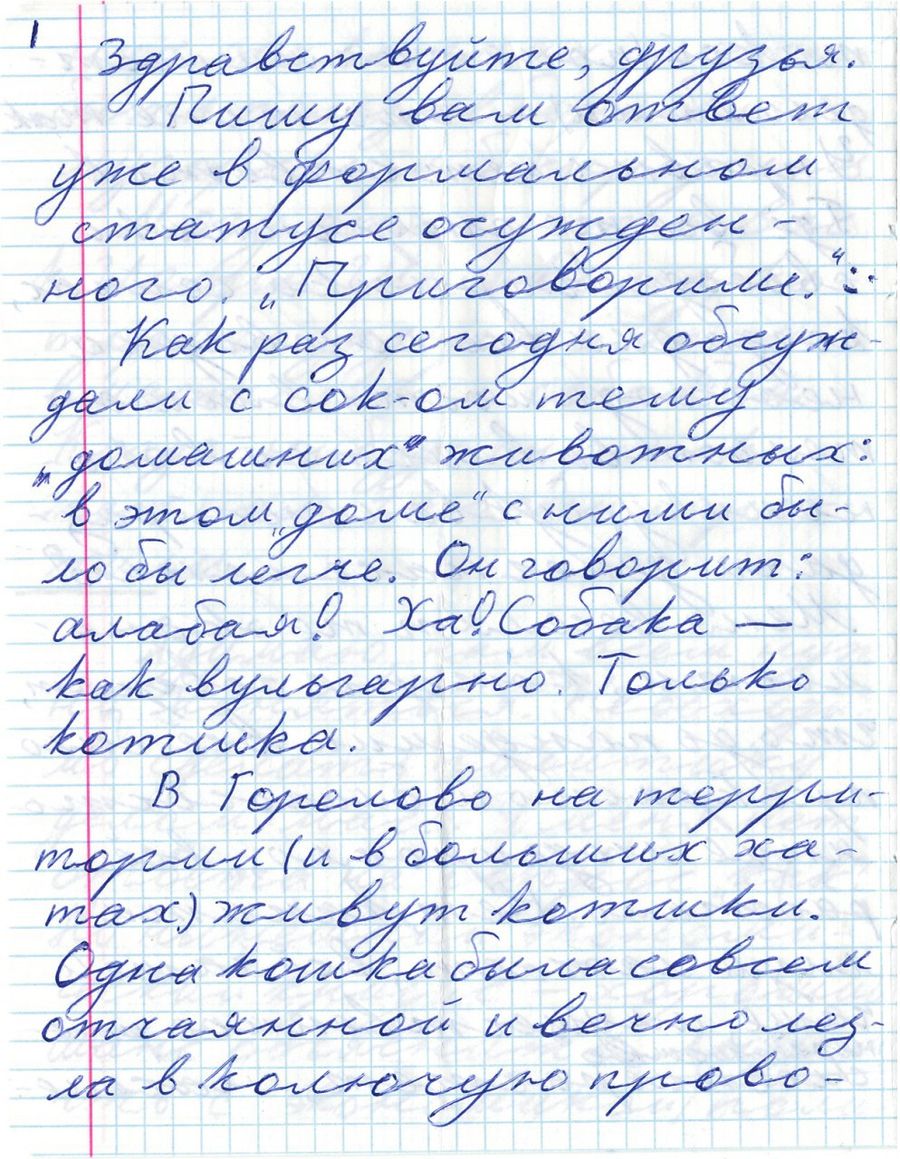 1
Здравствуйте, друзья.
Пишу вам ответ
уже в формальном
статусе осужден-
ного. „Приговорили.“ :)
Как раз сегодня обсуж-
дали с сок-ом тему
„домашних“ животных:
в этом „доме“ с ними бы-
ло бы легче. Он говорит:
алабая! Ха! Собака —
как вульгарно. Только
котика.
В Горелово на терри-
тории (и в больших ха-
тах) живут котики.
Одна кошка была совсем
отчаянной и вечно лез-
ла в колючую прово-